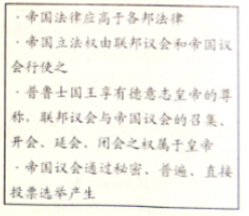 ·帝国法律应高于各邦法律
·帝国立法权由联邦议会和帝国议
会行使之
·普鲁士国王享有德意志皇帝的尊
称，联邦议会与帝国议会的召集、
开会、延会、闭会之权属于皇帝
·帝国议会通过秘密、普遍、直接
投票选举产生